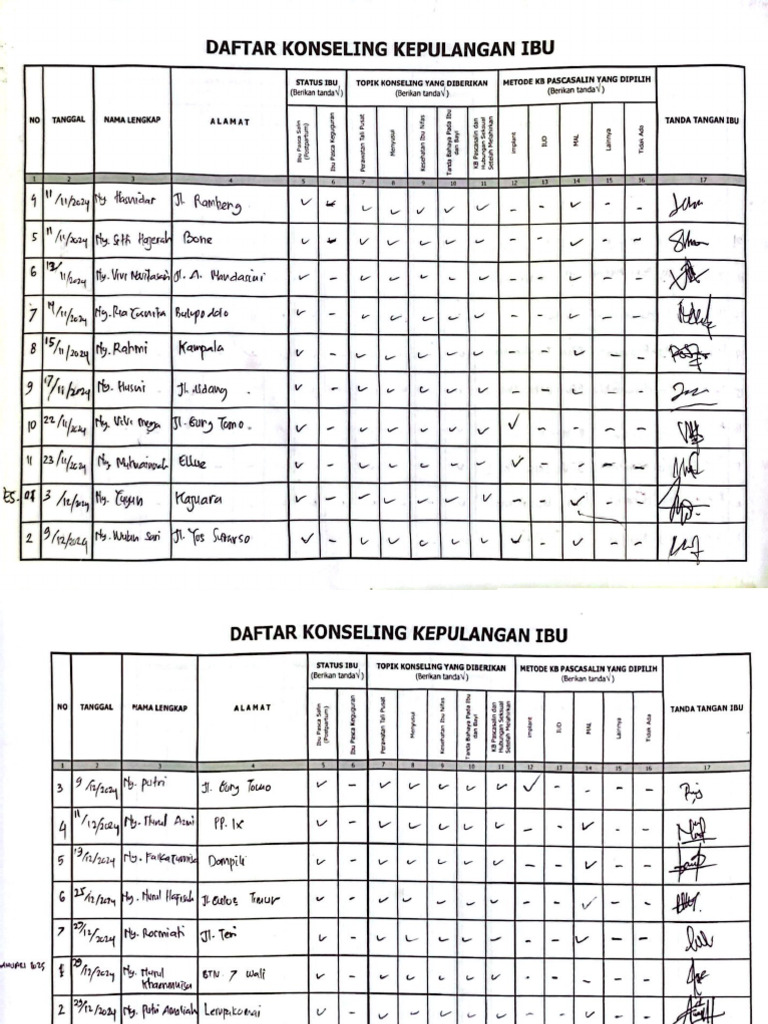 DAFTAR KONSELING KEPULANGAN IBU
NO TANGGAL NAMA LENGKAP ALAMAT STATUS IBU (Berikan tanda√) TOPIK KONSELING YANG DIBERIKAN (Berikan tanda√) METODE KB PASCASALIN YANG DIPILIH (Berikan tanda√) TANDA TANGAN IBU
Ibu Pasca Salin (Postpartum) Ibu Pasca Keguguran Perawatan Tali Pusat Menyusui Kesehatan Ibu Nifas Tanda Bahaya Pada Ibu dan Bayi KB Pascasalin dan Hubungan Seksual Setelah Melahirkan implant IUD MAL Lainnya Tidak Ada
1 2 3 4 5 6 7 8 9 10 11 12 13 14 15 16 17
4 11/11/2024 Ny Hasnidar Jl. Ramberg ✓ - ✓ ✓ ✓ ✓ ✓ - - ✓ - -
5 11/11/2024 Ny. Sitti Hajerah Bone ✓ - ✓ ✓ ✓ ✓ ✓ - - ✓ - -
6 12/11/2024 Ny. Vivi Novitasari Jl. A. Mandasini ✓ - ✓ ✓ ✓ ✓ ✓ - - ✓ - -
7 14/11/2024 Ny. Ria Bulupoddo ✓ - ✓ ✓ ✓ ✓ ✓ - - ✓ - -
8 15/11/2024 Ny. Rahmi Kampala ✓ - ✓ ✓ ✓ ✓ ✓ - - ✓ - -
9 17/11/2024 Ny. Husni Jl. Udang ✓ - ✓ ✓ ✓ ✓ ✓ - - ✓ - -
10 22/11/2024 Ny. Vivi Jl. Bung Tomo. ✓ - ✓ ✓ ✓ ✓ ✓ ✓ - - - -
11 23/11/2024 Ny. Ellue ✓ - ✓ ✓ ✓ ✓ ✓ ✓ - - - -
3/12/2024 Ny. Kajuara ✓ - - ✓ ✓ ✓ ✓ - - ✓ - -
2 9/12/2024 Ny. Wulan Sari Jl. Yos Sudarso ✓ - ✓ ✓ ✓ ✓ ✓ - ✓ - -
DAFTAR KONSELING KEPULANGAN IBU
NO TANGGAL NAMA LENGKAP ALAMAT STATUS IBU (Berikan tanda√) TOPIK KONSELING YANG DIBERIKAN (Berikan tanda√) METODE KB PASCASALIN YANG DIPILIH (Berikan tanda√) TANDA TANGAN IBU
Ibu Pasca Salin (Postpartum) Ibu Pasca Keguguran Perawatan Tali Pusat Menyusui Kesehatan Ibu Nifas Tanda Bahaya Pada Ibu dan Bayi KB Pascasalin dan Hubungan Seksual Setelah Melahirkan implant IUD MAL Lainnya Tidak Ada
1 2 3 4 5 6 7 8 9 10 11 12 13 14 15 16 17
3 9/12/2024 Ny. putri Jl. Bung Tomo ✓ - ✓ ✓ ✓ ✓ ✓ ✓ - - - -
4 11/12/2024 Ny. Nurul Azmi PP. IX ✓ - ✓ ✓ ✓ ✓ ✓ - - ✓ - -
5 13/12/2024 Ny. Dampili ✓ - ✓ ✓ ✓ ✓ ✓ - - ✓ - -
6 25/12/2024 Ny. Nurul Hafisah Jl. Timur ✓ - ✓ ✓ ✓ ✓ ✓ - - ✓ - -
7 27/12/2024 Ny. Rosmiati Jl. Teri ✓ - ✓ ✓ ✓ ✓ ✓ - - ✓ - -
1 29/12/2024 Ny. Nurul Khammusa BTN. 7 Wali ✓ - ✓ ✓ ✓ ✓ ✓ - - ✓ - -
2 29/12/2024 Ny. Putri ✓ - ✓ ✓ ✓ ✓ ✓ - - ✓ - -